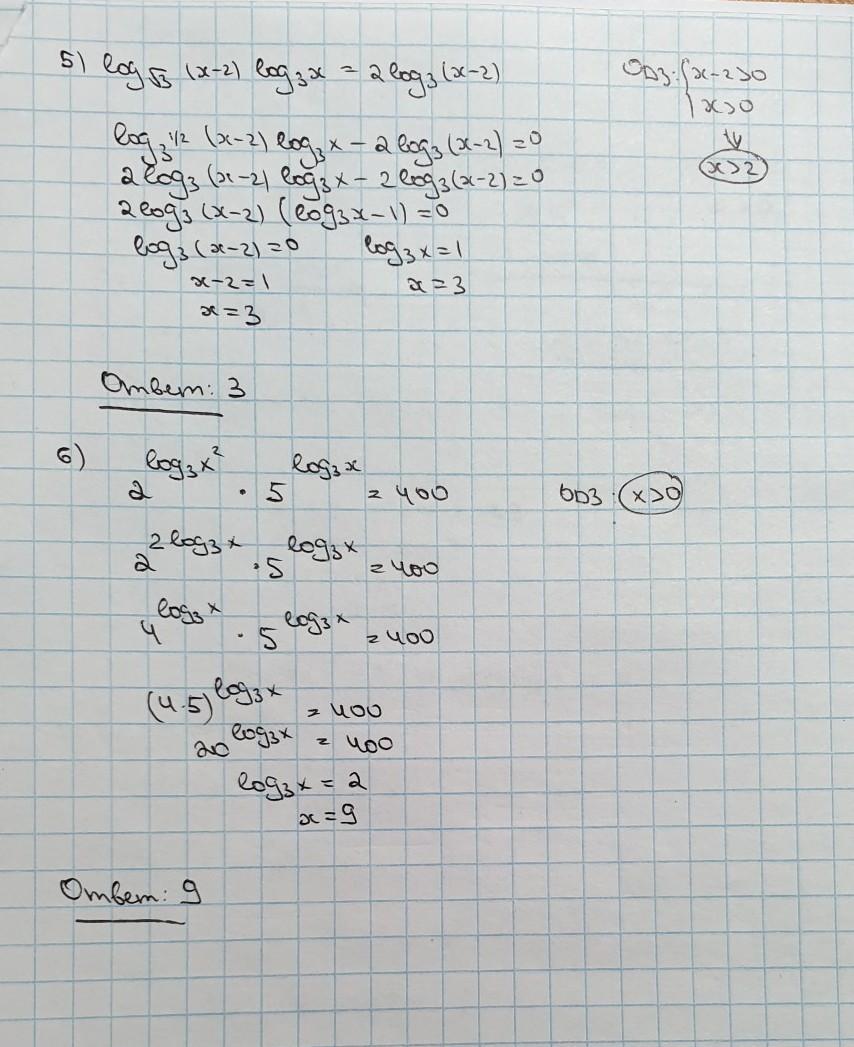 5) log_√3 (x-2) log₃x = 2log₃(x-2)   ОДЗ: {x-2>0
x>0
⇓
x>2
log_3^1/2 (x-2) log₃x - 2log₃(x-2) = 0
2log₃(x-2) log₃x - 2log₃(x-2) = 0
2log₃(x-2) (log₃x-1) = 0
log₃(x-2) = 0   log₃x = 1
x-2=1   x=3
x=3
Ответ: 3
6) 2^log₃x² · 5^log₃x = 400   ОДЗ: x>0
2^2log₃x · 5^log₃x = 400
4^log₃x · 5^log₃x = 400
(4·5)^log₃x = 400
20^log₃x = 400
log₃x = 2
x=9
Ответ: 9